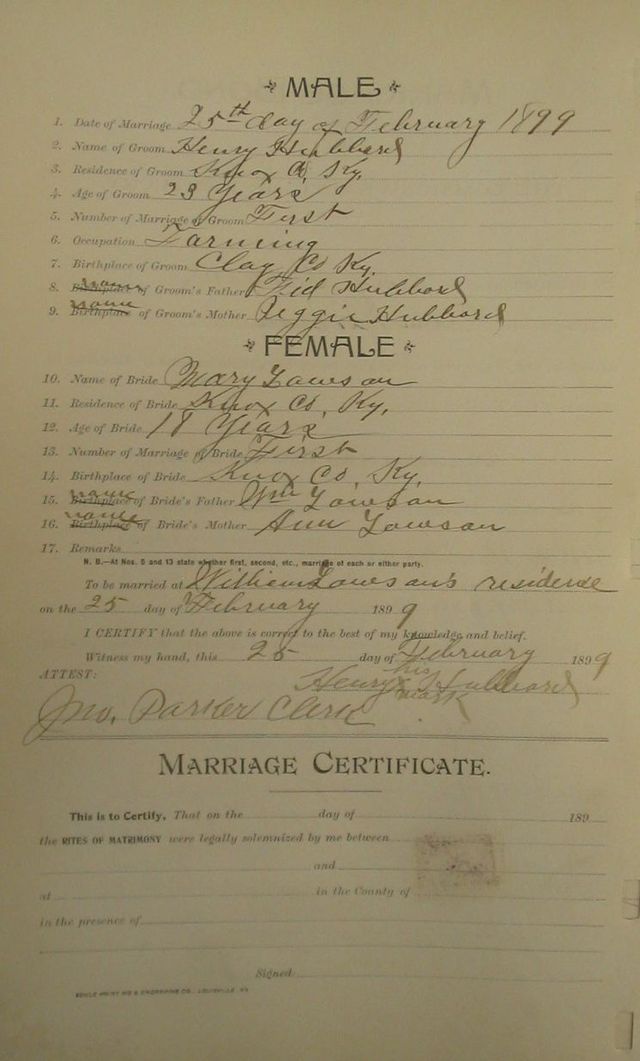 MALE
1. Date of Marriage 25th day of February 1899
2. Name of Groom Henry Hubbard
3. Residence of Groom Knox Co, Ky.
4. Age of Groom 23 Years
5. Number of Marriage of Groom First
6. Occupation Farming
7. Birthplace of Groom Clay Co Ky.
8. Birthplace name of Groom's Father Fid Hubbard
9. Birthplace name of Groom's Mother Peggie Hubbard
FEMALE
10. Name of Bride Mary Lawson
11. Residence of Bride Knox Co, Ky.
12. Age of Bride 18 Years
13. Number of Marriage of Bride First
14. Birthplace of Bride Knox Co, Ky.
15. Birthplace name of Bride's Father Wm Lawson
16. Birthplace name of Bride's Mother Ann Lawson
17. Remarks
N. B.—At Nos. 5 and 13 state whether first, second, etc., marriage of each or either party.
To be married at William Lawson's residense
on the 25 day of February 1899
I CERTIFY that the above is correct to the best of my knowledge and belief.
Witness my hand, this 25 day of February 1899
ATTEST: Henry his x mark Hubbard
Jno. Parker Clerk
MARRIAGE CERTIFICATE.
This is to Certify, That on the day of 189
the RITES OF MATRIMONY were legally solemnized by me between
and
at in the County of
in the presence of
Signed